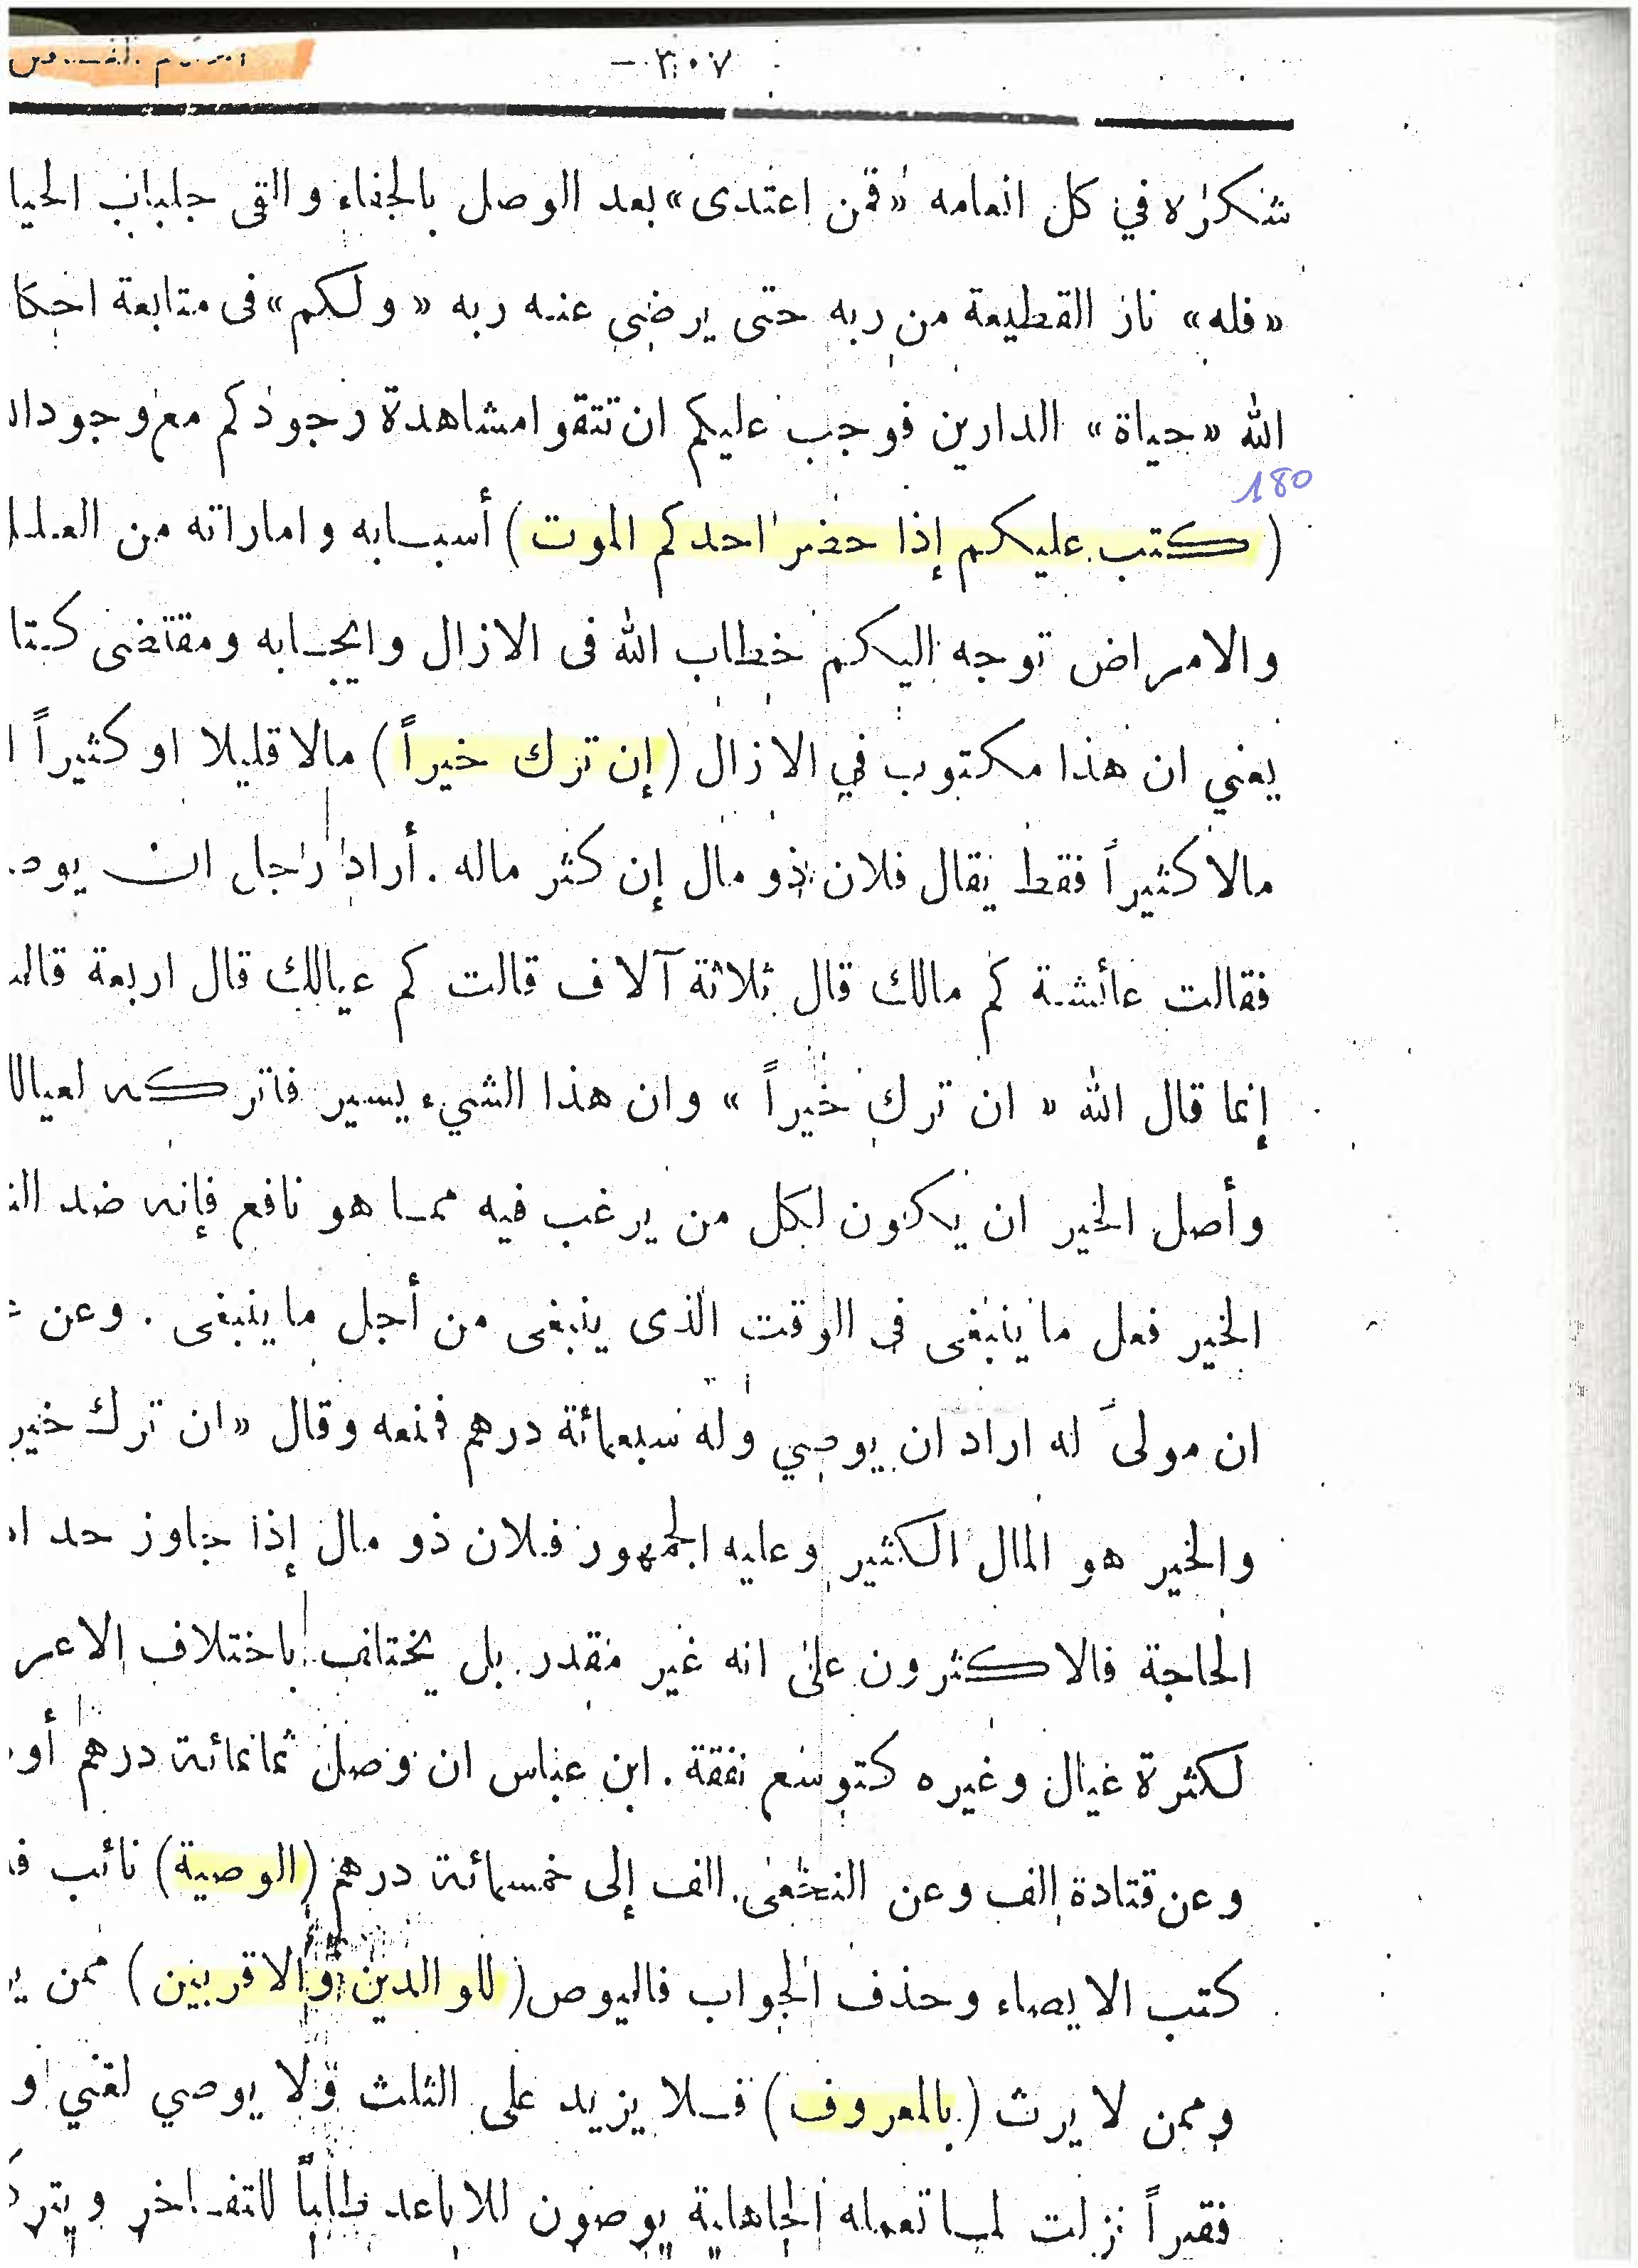 -٣٠٧-
شكره في كل انعامه «فمن اعتدى» بعد الوصل بالجفاء والقى جلباب الحيا
«فله» نار القطيعة من ربه حتى يرضى عنه ربه «ولكم» فى متابعة احكا
الله «حياة» الدارين فوجب عليكم ان تتقوا مشاهدة وجودكم مع وجود
180
(كتب عليكم إذا حضر احدكم الموت) أسبابه واماراته من العلل
والامراض توجه اليكم خطاب الله فى الازال وايجابه ومقتضى كتا
يعني ان هذا مكتوب في الازال (إن ترك خيراً) مالا قليلا او كثيراً ا
مالا كثيراً فقط يقال فلان ذو مال إن كثر ماله . أراد رجل ان يو
فقالت عائشة كم مالك قال ثلاثة آلاف قالت كم عيالك قال اربعة قالت
إنما قال الله « ان ترك خيراً » وان هذا الشيء يسير فاتركه لعيالك
وأصل الخير ان يكون لكل من يرغب فيه مما هو نافع فإنه ضد
الخير فعل ما ينبغى فى الوقت الذى ينبغى من أجل ما ينبغى . وعن
ان مولىً له اراد ان يوصي وله سبعمائة درهم فمنعه وقال «ان ترك خير
والخير هو المال الكثير وعليه الجمهور فلان ذو مال إذا جاوز حد
الحاجة فالاكثرون على انه غير مقدر بل يختلف باختلاف الاعر
لكثرة عيال وغيره كتوسع نفقة . ابن عباس ان وصل ثمانمائة درهم أو
وعن قتادة الف وعن النخعى الف إلى خمسمائة درهم (الوصية) نائب
كتب الايصاء وحذف الجواب فاليوص (للوالدين والاقربين) ممن ير
وممن لا يرث (بالمعروف) فلا يزيد على الثلث ولا يوصي لغني و
فقيراً نزلت لما تعمله الجاهلية يوصون للاباعد طلباً للتفاخر ويتر